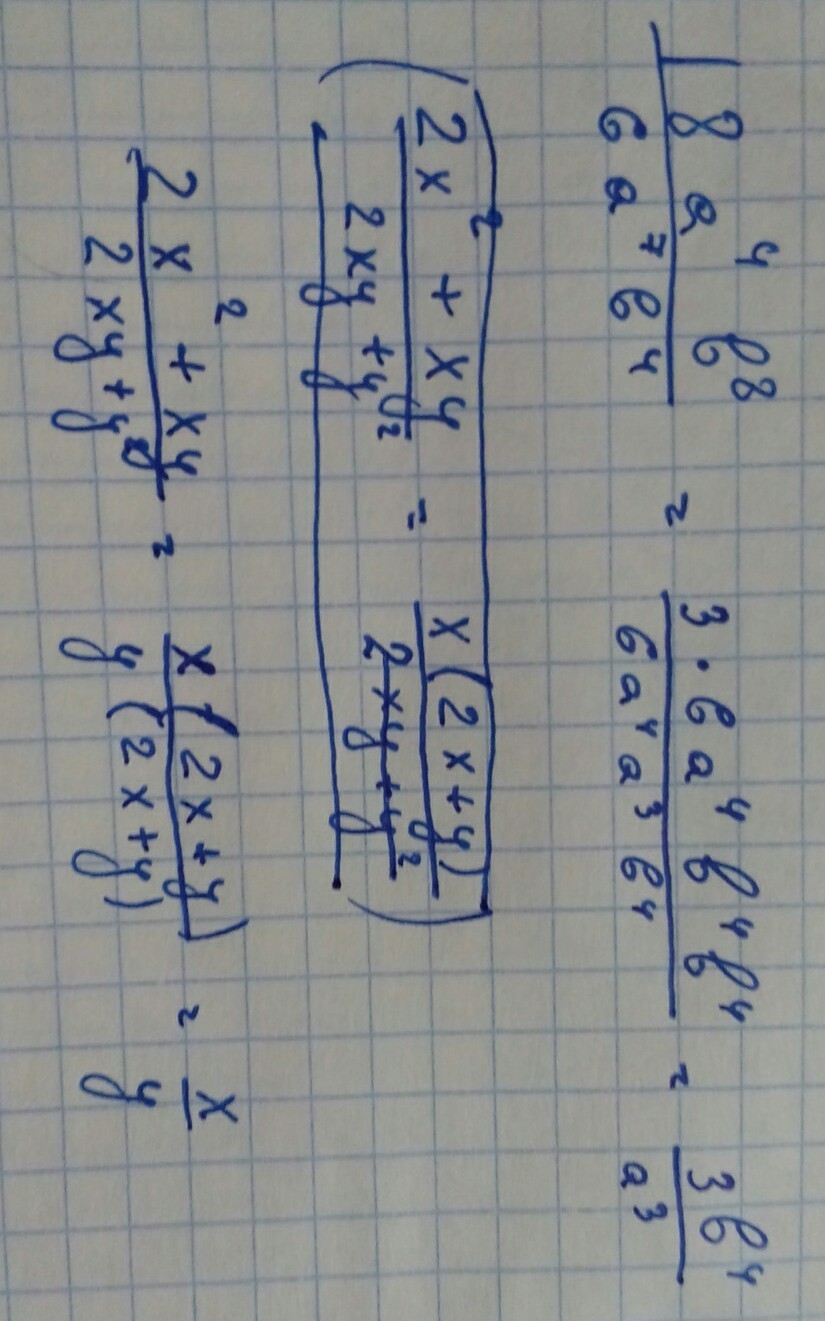 18a⁴b⁸ / 6a⁷b⁴ = 3·6a⁴b⁴b⁴ / 6a⁴a³b⁴ = 3b⁴ / a³
(2x² + xy / 2xy + y² = x(2x+y) / 2xy + y²)
2x² + xy / 2xy + y² = x(2x+y) / y(2x+y) = x / y